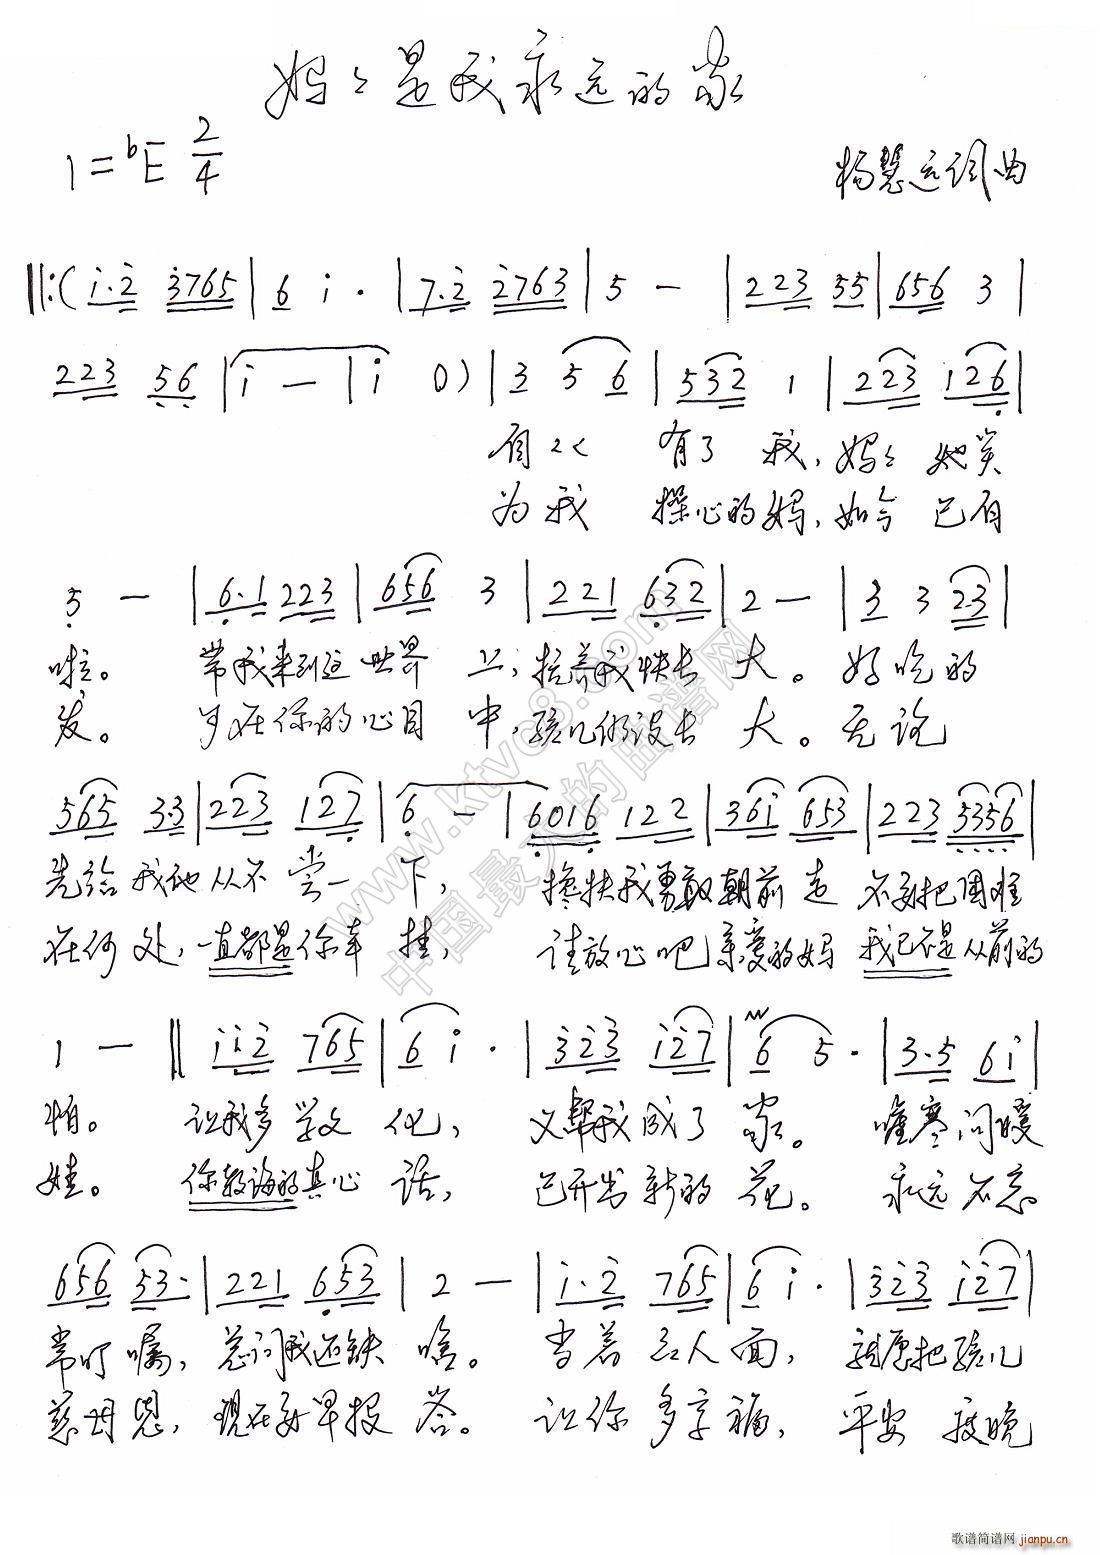 妈々是我永远的家
1=bE 2/4
杨慧远词曲
‖:( i·2 3765 | 6 i· | 7·2 2763 | 5 — | 223 55 | 656 3 |
223 56 | i — | i 0) | 3 5 6 | 532 1 | 223 126 |
自从 有了 我, 妈々 她笑
为我 操心的妈, 如今 已有
5 — | 6·1 223 | 656 3 | 221 632 | 2 — | 3 3 23 |
啦。 带我来到这世界 上, 抚养我快长 大。 好吃的
发。 可在你的心目 中, 孩儿仍没长 大。 无论
565 3·3 | 223 127 | 6 — | 6016 122 | 36i 653 | 223 5356 |
先给 我他从不 尝一 下, 搀扶我勇敢朝前 走 不要把困难
在何 处, 一直都是你牵 挂, 请放心吧亲爱的妈 我已不是从前的
1 — ‖ ii2 765 | 6 i· | 323 i27 | 6 5· | 3·5 6i |
怕。 让我多学文 化, 又帮我成了 家。 嘘寒问暖
娃。 你教诲的真心 话, 已开出新的 花。 永远不忘
656 53· | 221 653 | 2 — | i·2 765 | 6 i· | 323 i27 |
常叮嘱, 总问我还缺 啥。 当着 众人面, 就愿把孩儿
慈母恩, 现在要早报 答。 让你 多享福, 平安 夜晚
www.ktvc8.com
中国最大的曲谱网
歌谱简谱网
jianpu.cn